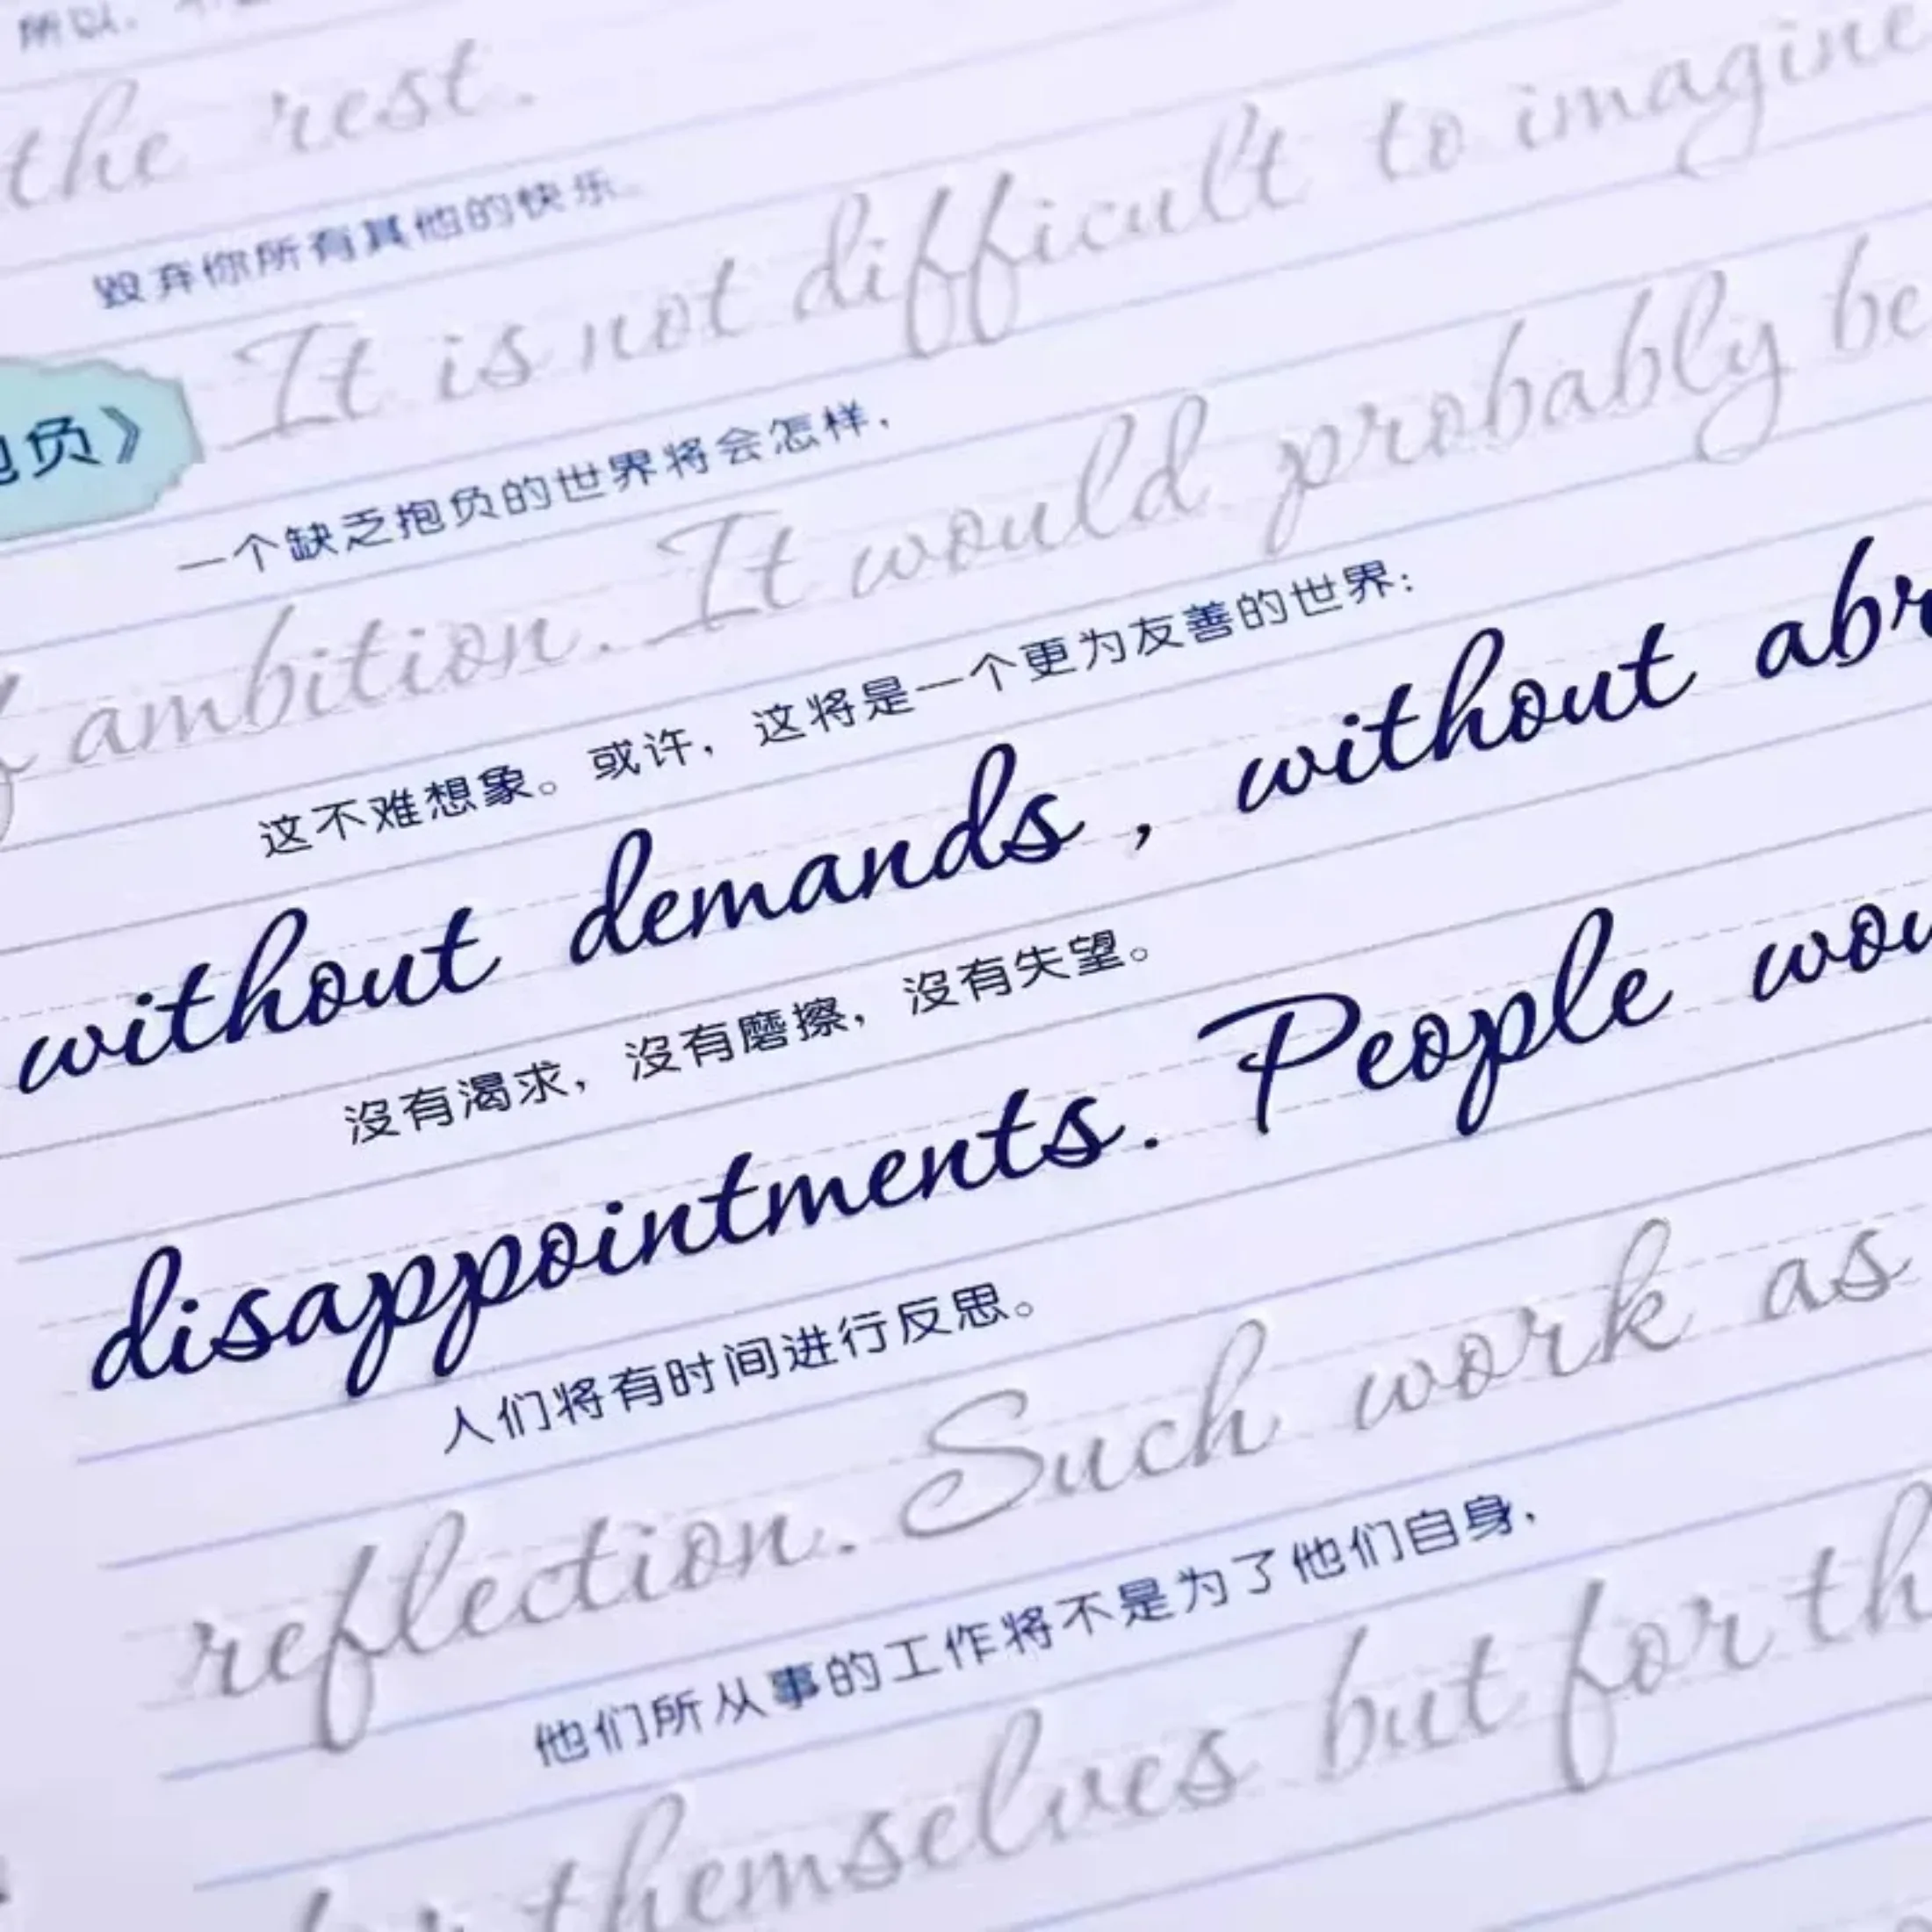 所以,
the rest.
毁弃你所有其他的快乐
负》
It is not difficult to imagine
一个缺乏抱负的世界将会怎样,
ambition. It would probably be
这不难想象。或许，这将是一个更为友善的世界:
without demands, without abr
沒有渴求，沒有磨擦，沒有失望。
disappointments. People wou
人们将有时间进行反思。
reflection. Such work as
他们所从事的工作将不是为了他们自身,
themselves but for th